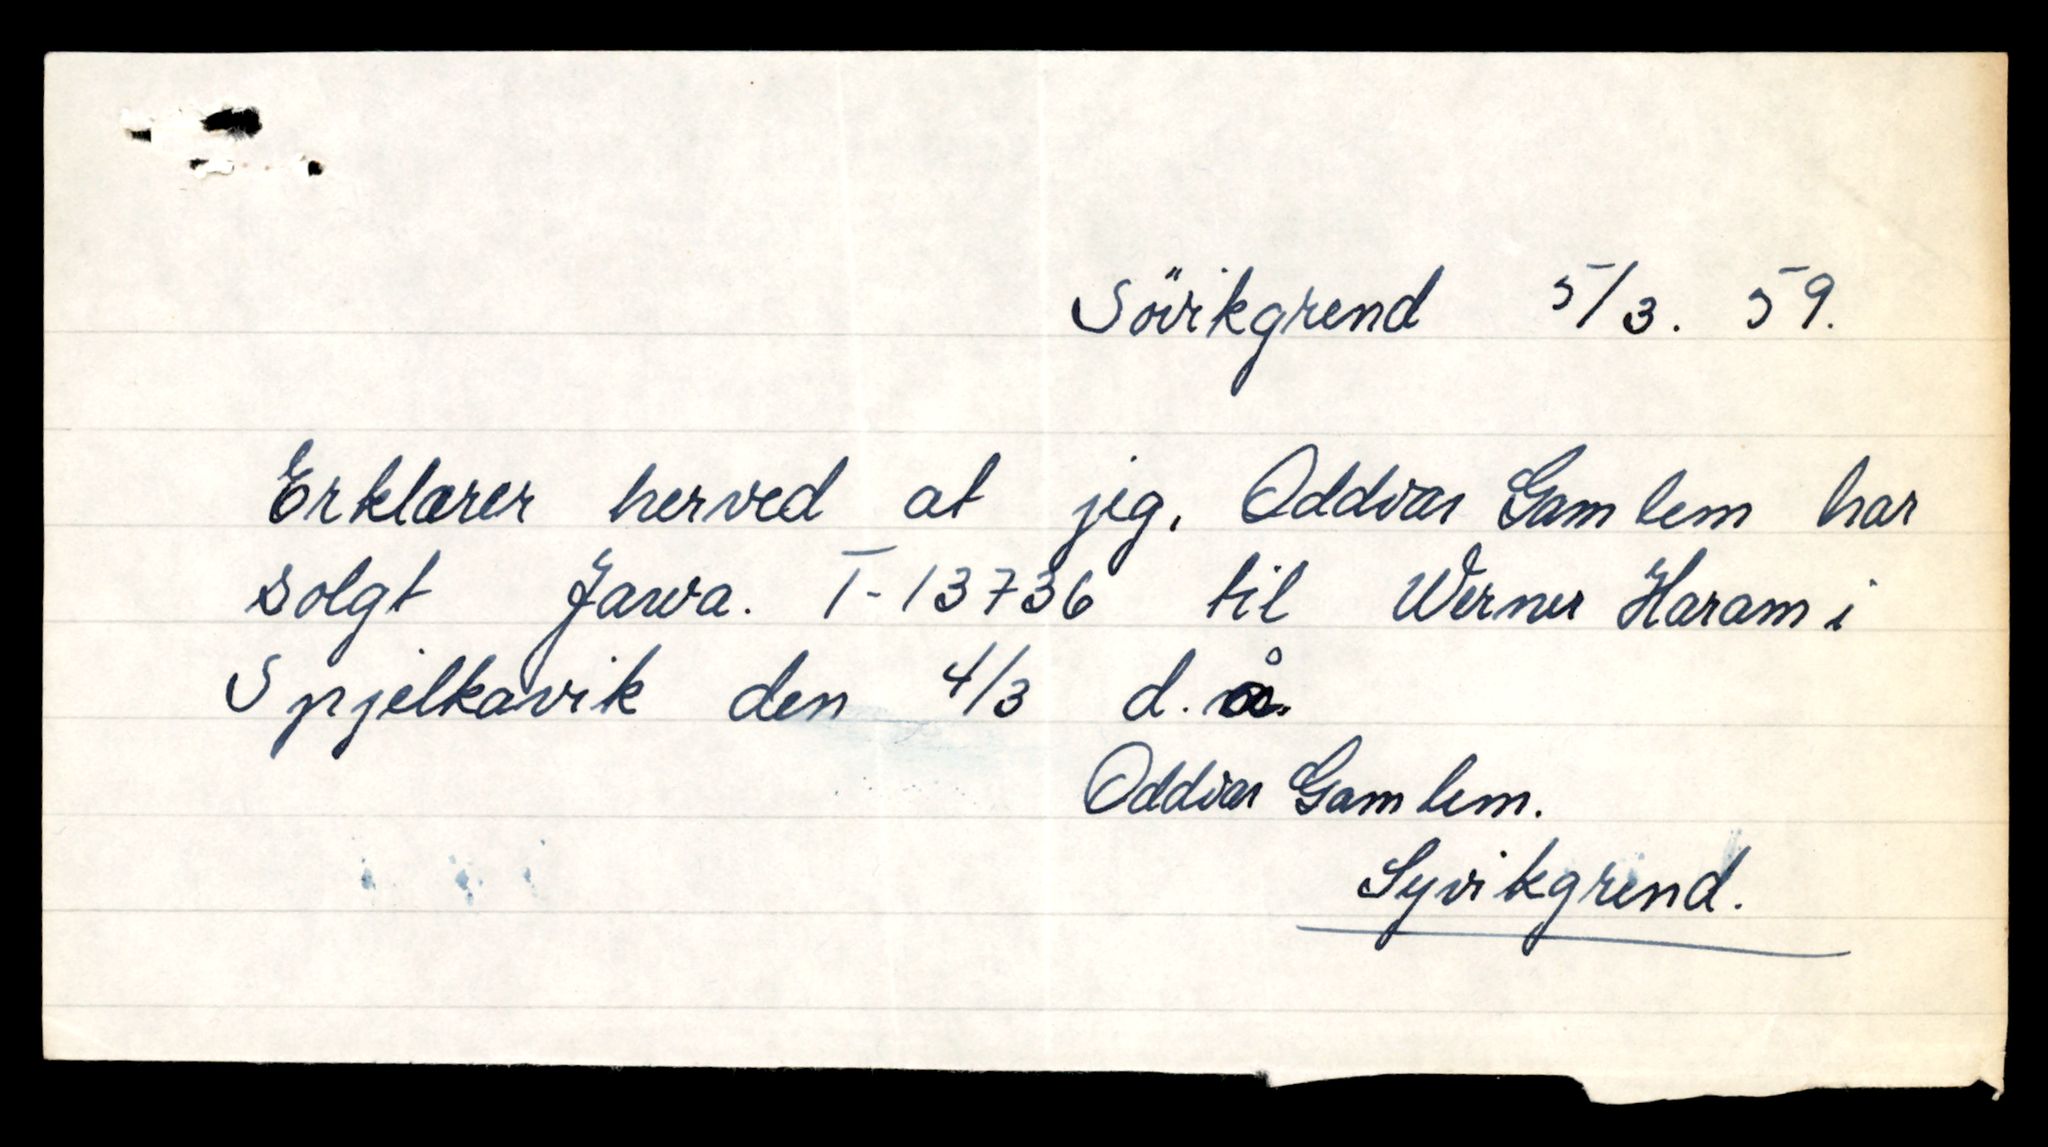 Sövikgrend 5/3. 59.
Erklærer herved at jeg, Oddvar Gamlem har
solgt Jawa. T-13736 til Werner Haram i
Spjelkavik den 4/3 d.å.
Oddvar Gamlem.
Syvikgrend.